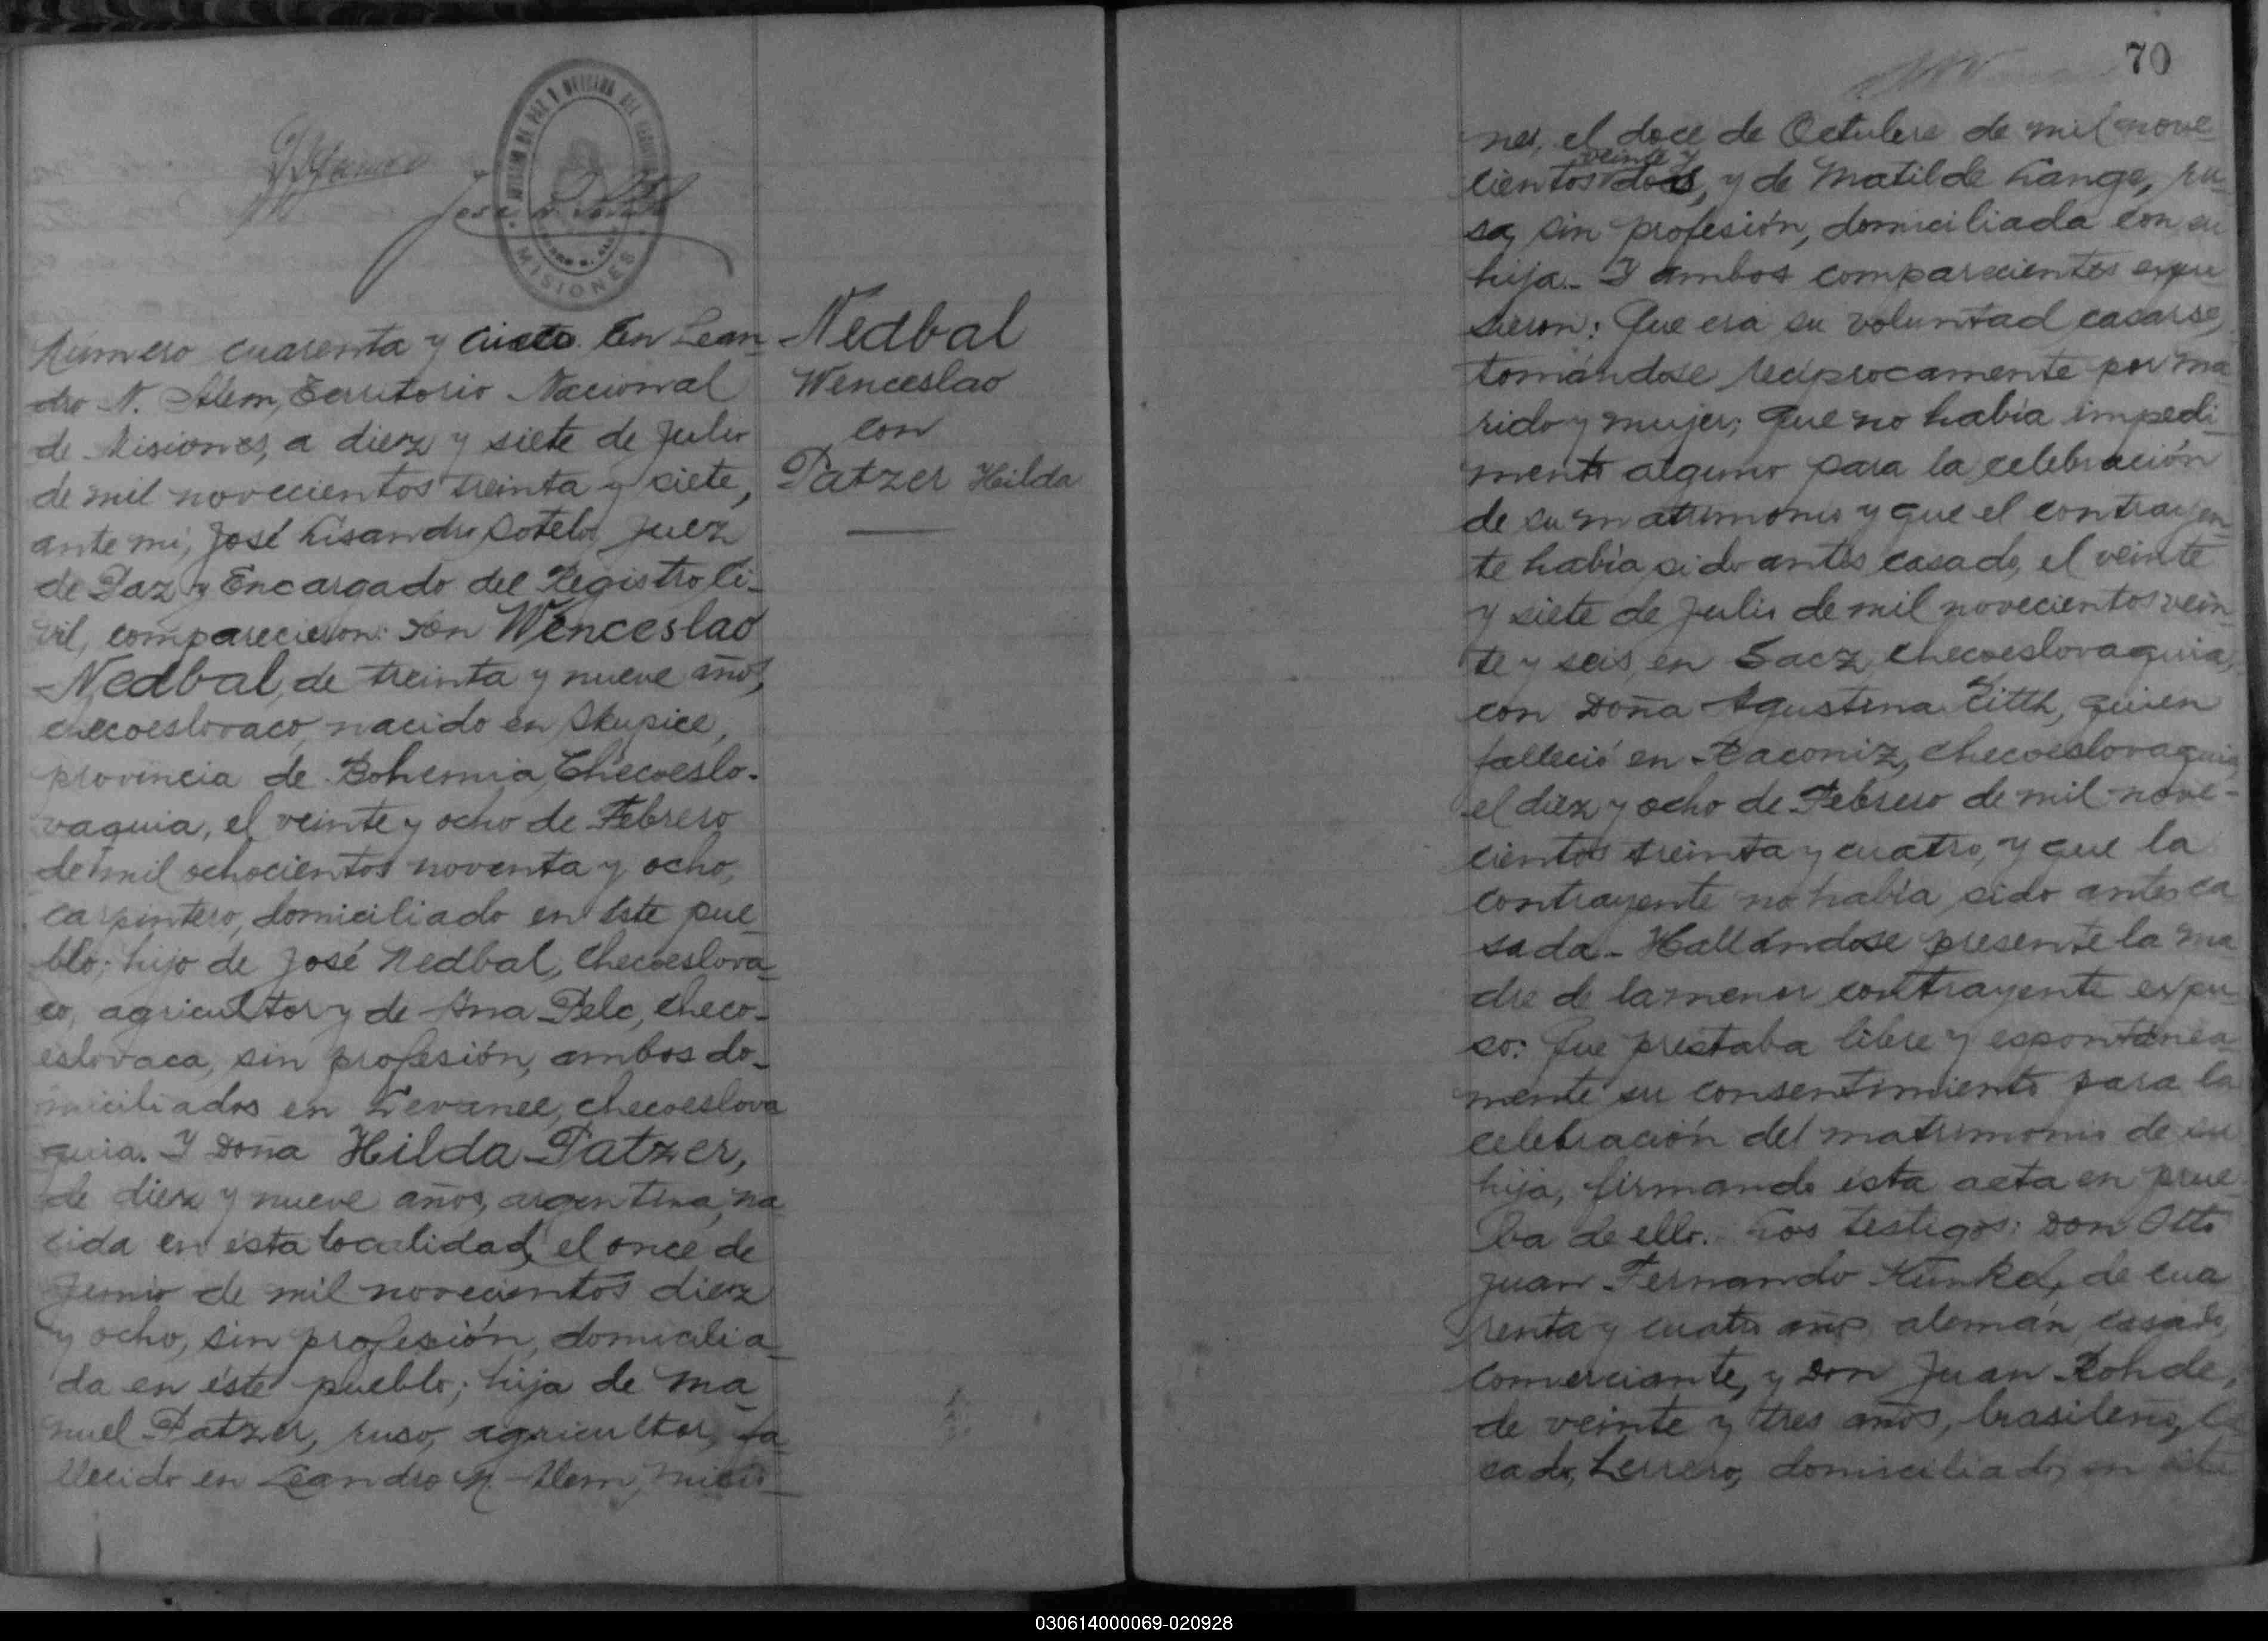 MISIONES
Número cuarenta y En Lean-
dro N. Alem, Territorio Nacional
de Misiones, a diez y siete de Julio
de mil novecientos treinta y siete,
ante mi, José Lisandro Sotelo, Juez
de Paz y Encargado del Registro Ci-
vil, comparecieron: Don Wenceslao
Nedbal, de treinta y nueve años,
checoeslovaco, nacido en Skupice,
provincia de Bohemia, Checoeslo-
vaquia, el veinte y ocho de Febrero
de mil ochocientos noventa y ocho,
carpintero, domiciliado en éste pue-
blo; hijo de José Nedbal, checoeslova-
co, agricultor y de Ana Pelc, checo-
eslovaca, sin profesión, ambos do-
miciliados en checoeslova
quia. Y Doña Hilda Patzer,
de diez y nueve años, argentina, na
cida en ésta localidad, el once de
Junio de mil novecientos diez
y ocho, sin profesión, domicilia-
da en éste pueblo; hija de Ma-
nuel Patzer, ruso, agricultor, fa-
llecido en Leandro N. Alem, Misio-
Nedbal
Wenceslao
con
Patzer Hilda
70
nes, el doce de Octubre de mil nove-
veinte y
cientos dos, y de Matilde Lange, ru-
sa, sin profesión, domiciliada con su
hija.- Y ambos comparecientes expu
sieron: Que era su voluntad casarse,
tomándose recíprocamente por ma
rido y mujer; Que no había impedi-
mento alguno para la celebración
de su matrimonio y que el contrayen-
te había sido antes casado, el veinte
y siete de Julio de mil novecientos vein-
te y seis, en Saez, checoeslovaquia,
con Doña Agustina quien
falleció en Raconiz, checoeslovaquia,
el diez y ocho de Febrero de mil nove-
cientos treinta y cuatro, y que la
contrayente no había sido antes ca
sada.- Hallándose presente la ma
dre de la menor contrayente expu-
so: Que prestaba libre y espontánea-
mente su consentimiento para la
celebración del matrimonio de su
hija, firmando ésta acta en prue-
ba de ello. Los testigos: Don Otto
Juan Fernando Künkel, de cua
renta y cuatro años, alemán, casado,
comerciante, y Don Juan Rohde,
de veinte y tres años, brasileño, ca
sado, herrero, domiciliados en éste
030614000069-020928